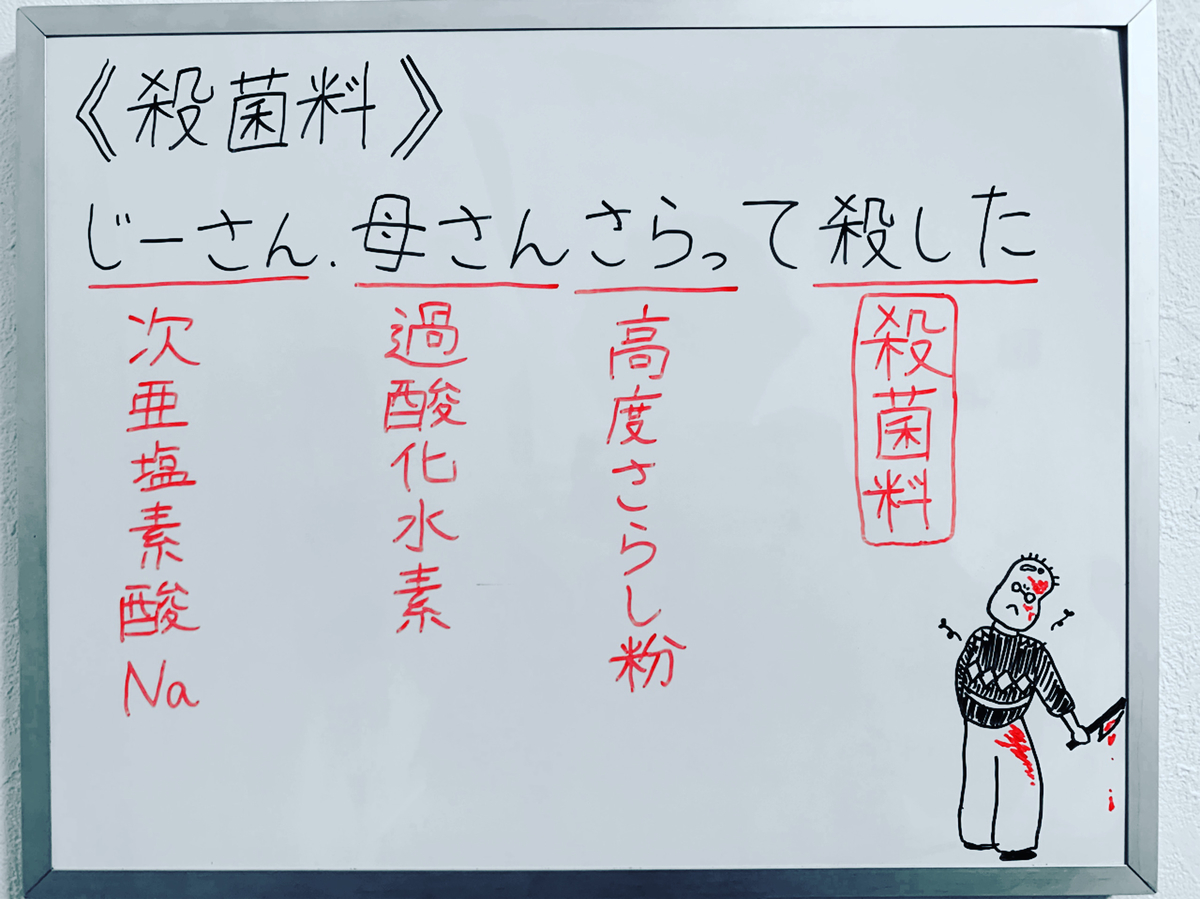 《殺菌料》
じーさん.母さんさらって殺した
次亜塩素酸Na
過酸化水素
高度さらし粉
殺菌料